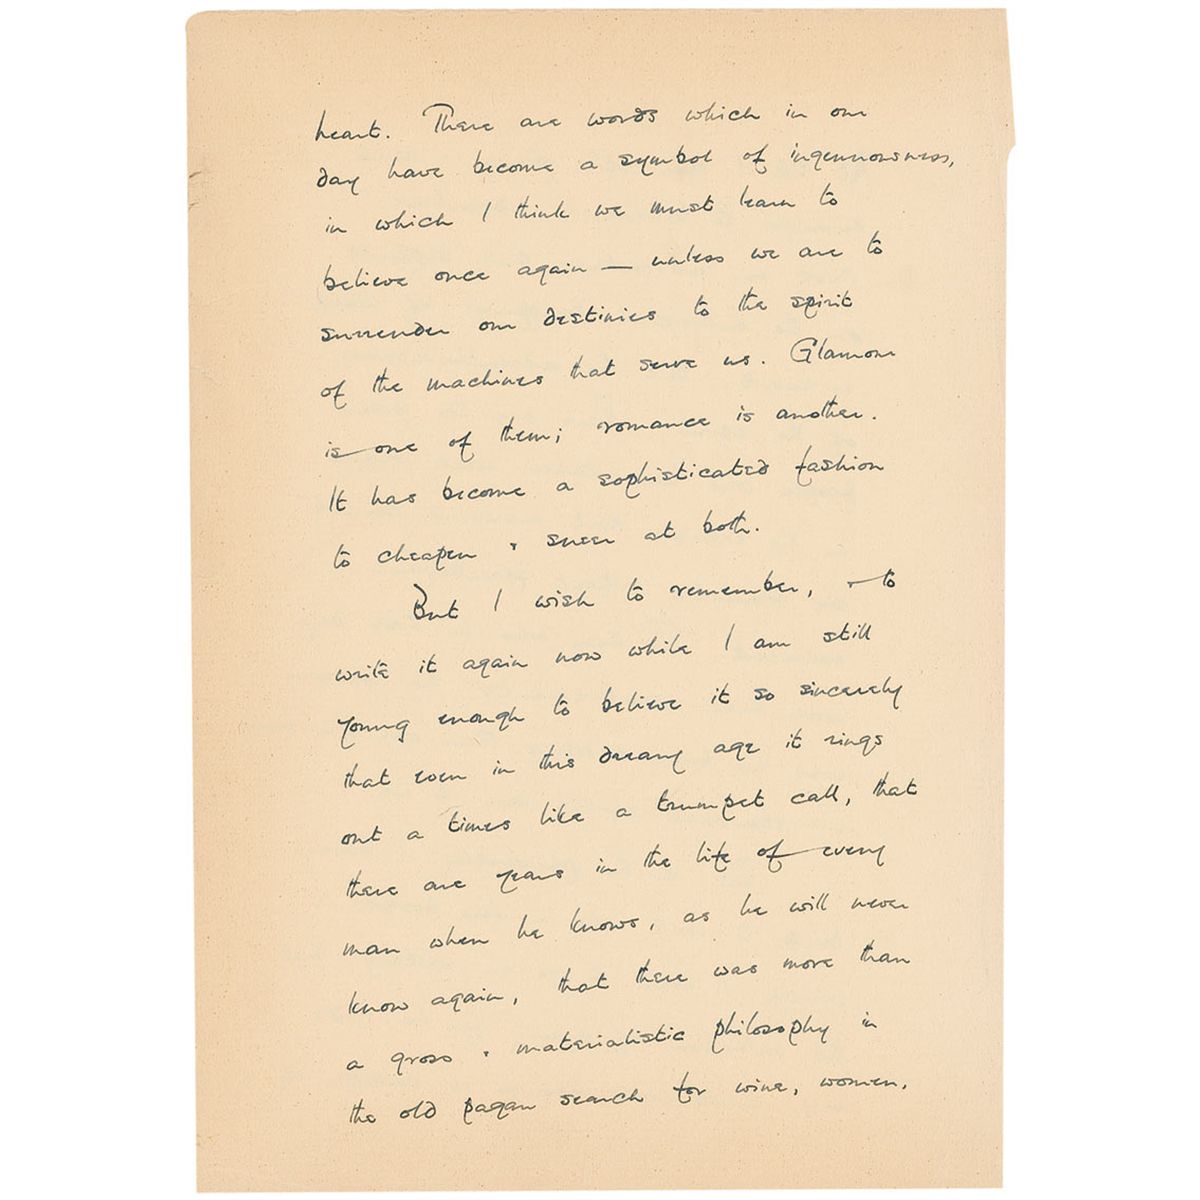 heart. There are words which in our
day have become a symbol of ingenuousness,
in which I think we must learn to
believe once again — unless we are to
surrender our destinies to the spirit
of the machines that serve us. Glamour
is one of them; romance is another.
It has become a sophisticated fashion
to cheapen & sneer at both.
But I wish to remember, & to
write it again now while I am still
young enough to believe it so sincerely
that even in this dreary age it rings
out a times like a trumpet call, that
there are years in the life of every
man when he knows, as he will never
know again, that there was more than
a gross & materialistic philosophy in
the old pagan search for wine, women,